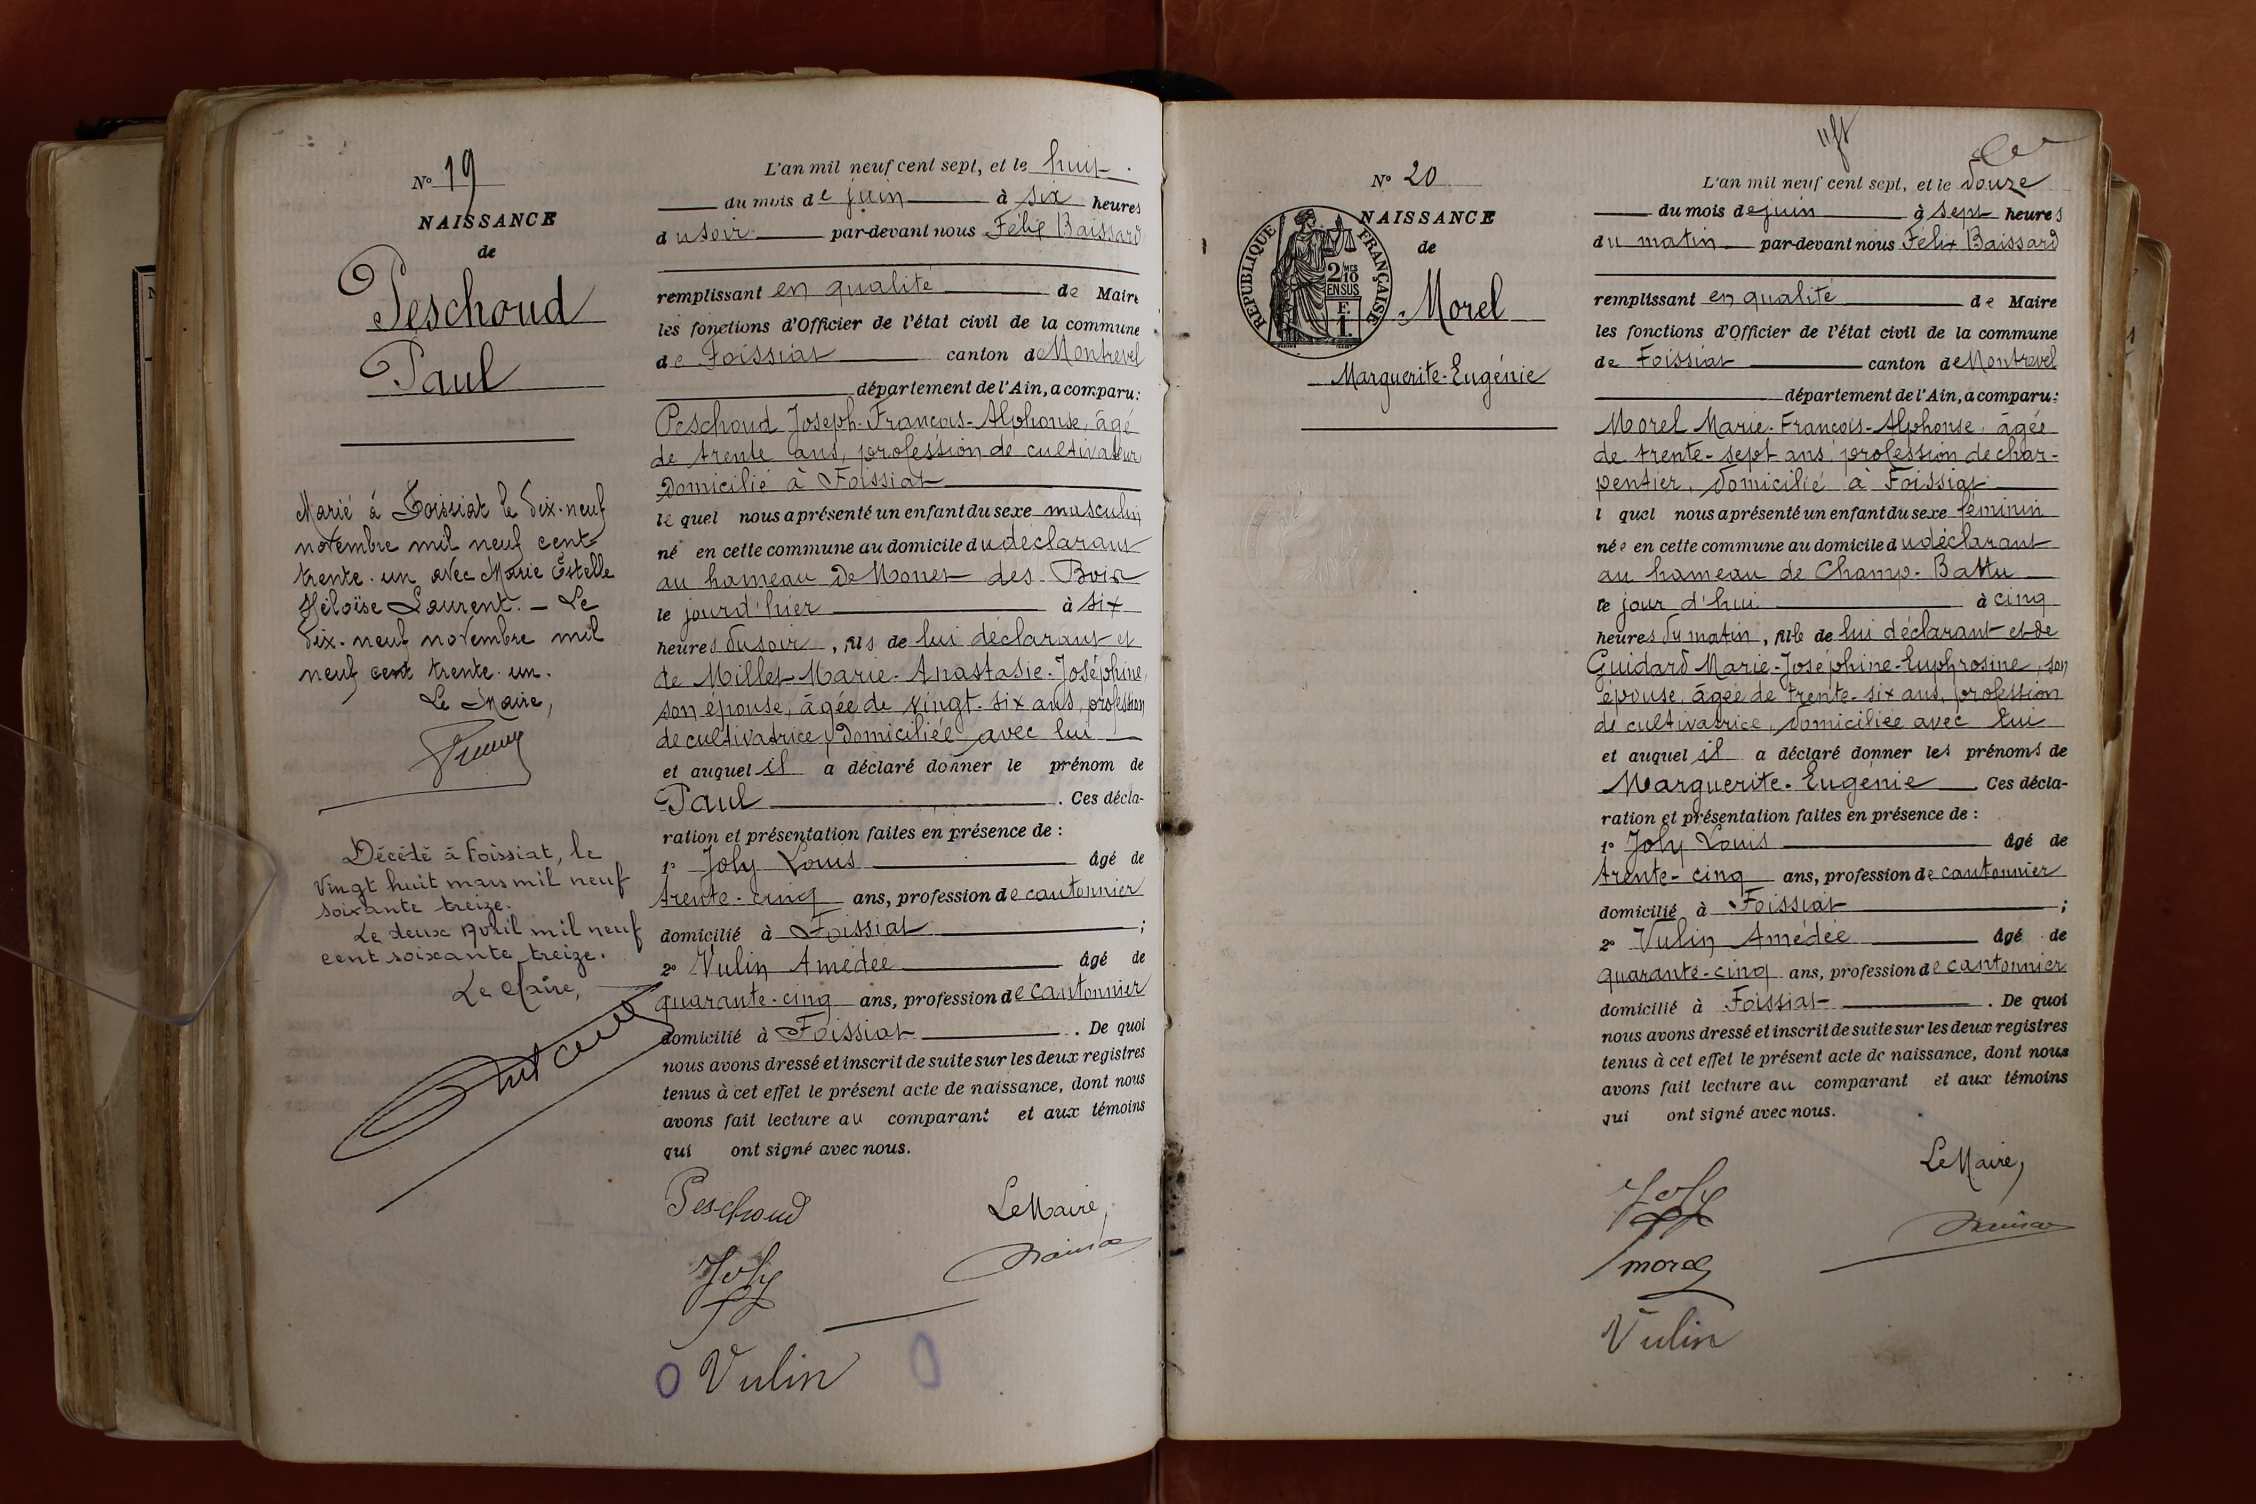 N° 19
NAISSANCE
de
Peschoud
Paul
Marié à Foissiat le dix-neuf
novembre mil neuf cent
trente-un avec Marie Estelle
Héloïse Laurent. — Le
dix-neuf novembre mil
neuf cent trente-un.
Le Maire,
Décédé à Foissiat, le
vingt huit mars mil neuf
soixante treize.
Le deux Avril mil neuf
cent soixante treize.
Le Maire,
L'an mil neuf cent sept, et le huit
du mois de juin à six heures
du soir par-devant nous Félix Baissard
remplissant en qualité de Maire
les fonctions d'Officier de l'état civil de la commune
de Foissiat canton de Montrevel
département de l'Ain, a comparu:
Peschoud Joseph-François-Alphonse, âgé
de trente ans, profession de cultivateur
domicilié à Foissiat
lequel nous a présenté un enfant du sexe masculin
né en cette commune au domicile du déclarant
au hameau de Monet des Bois
le jour d'hier à six
heures du soir, fils de lui déclarant et
de Millet Marie-Anastasie-Joséphine,
son épouse, âgée de vingt-six ans, profession
de cultivatrice, domiciliée avec lui
et auquel il a déclaré donner le prénom de
Paul. Ces décla-
ration et présentation faites en présence de :
1° Joly Louis âgé de
trente-cinq ans, profession de cantonnier
domicilié à Foissiat ;
2° Vulin Amédée âgé de
quarante-cinq ans, profession de cantonnier
domicilié à Foissiat. De quoi
nous avons dressé et inscrit de suite sur les deux registres
tenus à cet effet le présent acte de naissance, dont nous
avons fait lecture au comparant et aux témoins
qui ont signé avec nous.
Peschoud
Le Maire,
Joly
Vulin
N° 20
NAISSANCE
de
RÉPUBLIQUE FRANÇAISE
2/10 MES
EN SUS
F.
1.
Morel
Marguerite-Eugénie
L'an mil neuf cent sept, et le douze
du mois de juin à sept heures
du matin par-devant nous Félix Baissard
remplissant en qualité de Maire
les fonctions d'Officier de l'état civil de la commune
de Foissiat canton de Montrevel
département de l'Ain, a comparu:
Morel Marie-François-Alphonse, âgée
de trente-sept ans, profession de char-
pentier, domicilié à Foissiat
l quel nous a présenté un enfant du sexe féminin
née en cette commune au domicile du déclarant
au hameau de Champ-Battu
le jour d'hui à cinq
heures du matin, fille de lui déclarant et de
Guidard Marie-Joséphine-Euphrosine, son
épouse, âgée de trente-six ans, profession
de cultivatrice, domiciliée avec lui
et auquel il a déclaré donner les prénoms de
Marguerite-Eugénie. Ces décla-
ration et présentation faites en présence de :
1° Joly Louis âgé de
trente-cinq ans, profession de cantonnier
domicilié à Foissiat ;
2° Vulin Amédée âgé de
quarante-cinq ans, profession de cantonnier
domicilié à Foissiat. De quoi
nous avons dressé et inscrit de suite sur les deux registres
tenus à cet effet le présent acte de naissance, dont nous
avons fait lecture au comparant et aux témoins
qui ont signé avec nous.
Le Maire,
Joly
morel
Vulin